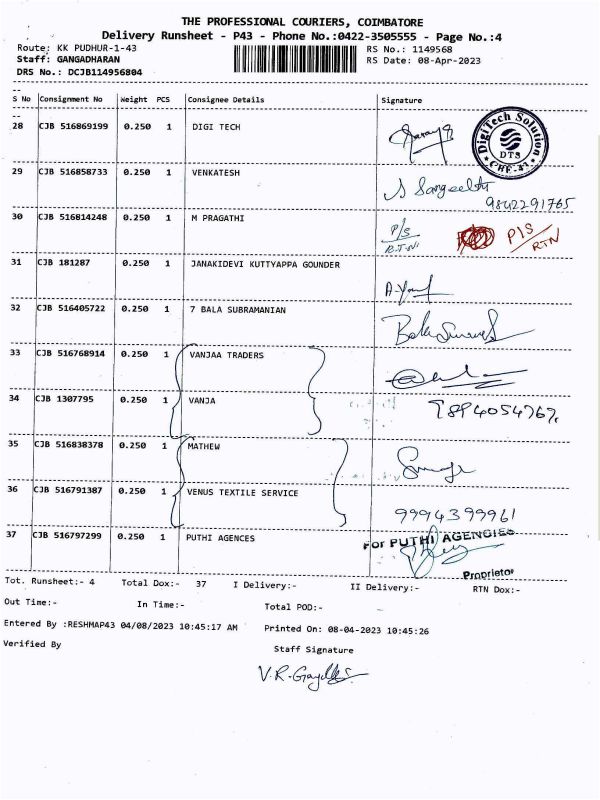 THE PROFESSIONAL COURIERS, COIMBATORE
Delivery Runsheet - P43 - Phone No.:0422-3505555 - Page No.:4
Route: KK PUDHUR-1-43 RS No.: 1149568
Staff: GANGADHARAN RS Date: 08-Apr-2023
DRS No.: DCJB114956804
S No Consignment No Weight PCS Consignee Details Signature
28 CJB 516869199 0.250 1 DIGI TECH
DigiTech Solution
DTS
CBE-43
29 CJB 516858733 0.250 1 VENKATESH
S Sangeetha
9842291765
30 CJB 516814248 0.250 1 M PRAGATHI
P/S P/S
RTN RTN
31 CJB 181287 0.250 1 JANAKIDEVI KUTTYAPPA GOUNDER
32 CJB 516405722 0.250 1 7 BALA SUBRAMANIAN
33 CJB 516768914 0.250 1 VANJAA TRADERS
34 CJB 1307795 0.250 1 VANJA
35 CJB 516838378 0.250 1 MATHEW
36 CJB 516791387 0.250 1 VENUS TEXTILE SERVICE
9994399961
37 CJB 516797299 0.250 1 PUTHI AGENCES
For PUTHI AGENCIES
Proprietor
Tot. Runsheet:- 4 Total Dox:- 37 I Delivery:- II Delivery:- RTN Dox:-
Out Time:- In Time:- Total POD:-
Entered By :RESHMAP43 04/08/2023 10:45:17 AM Printed On: 08-04-2023 10:45:26
Verified By Staff Signature